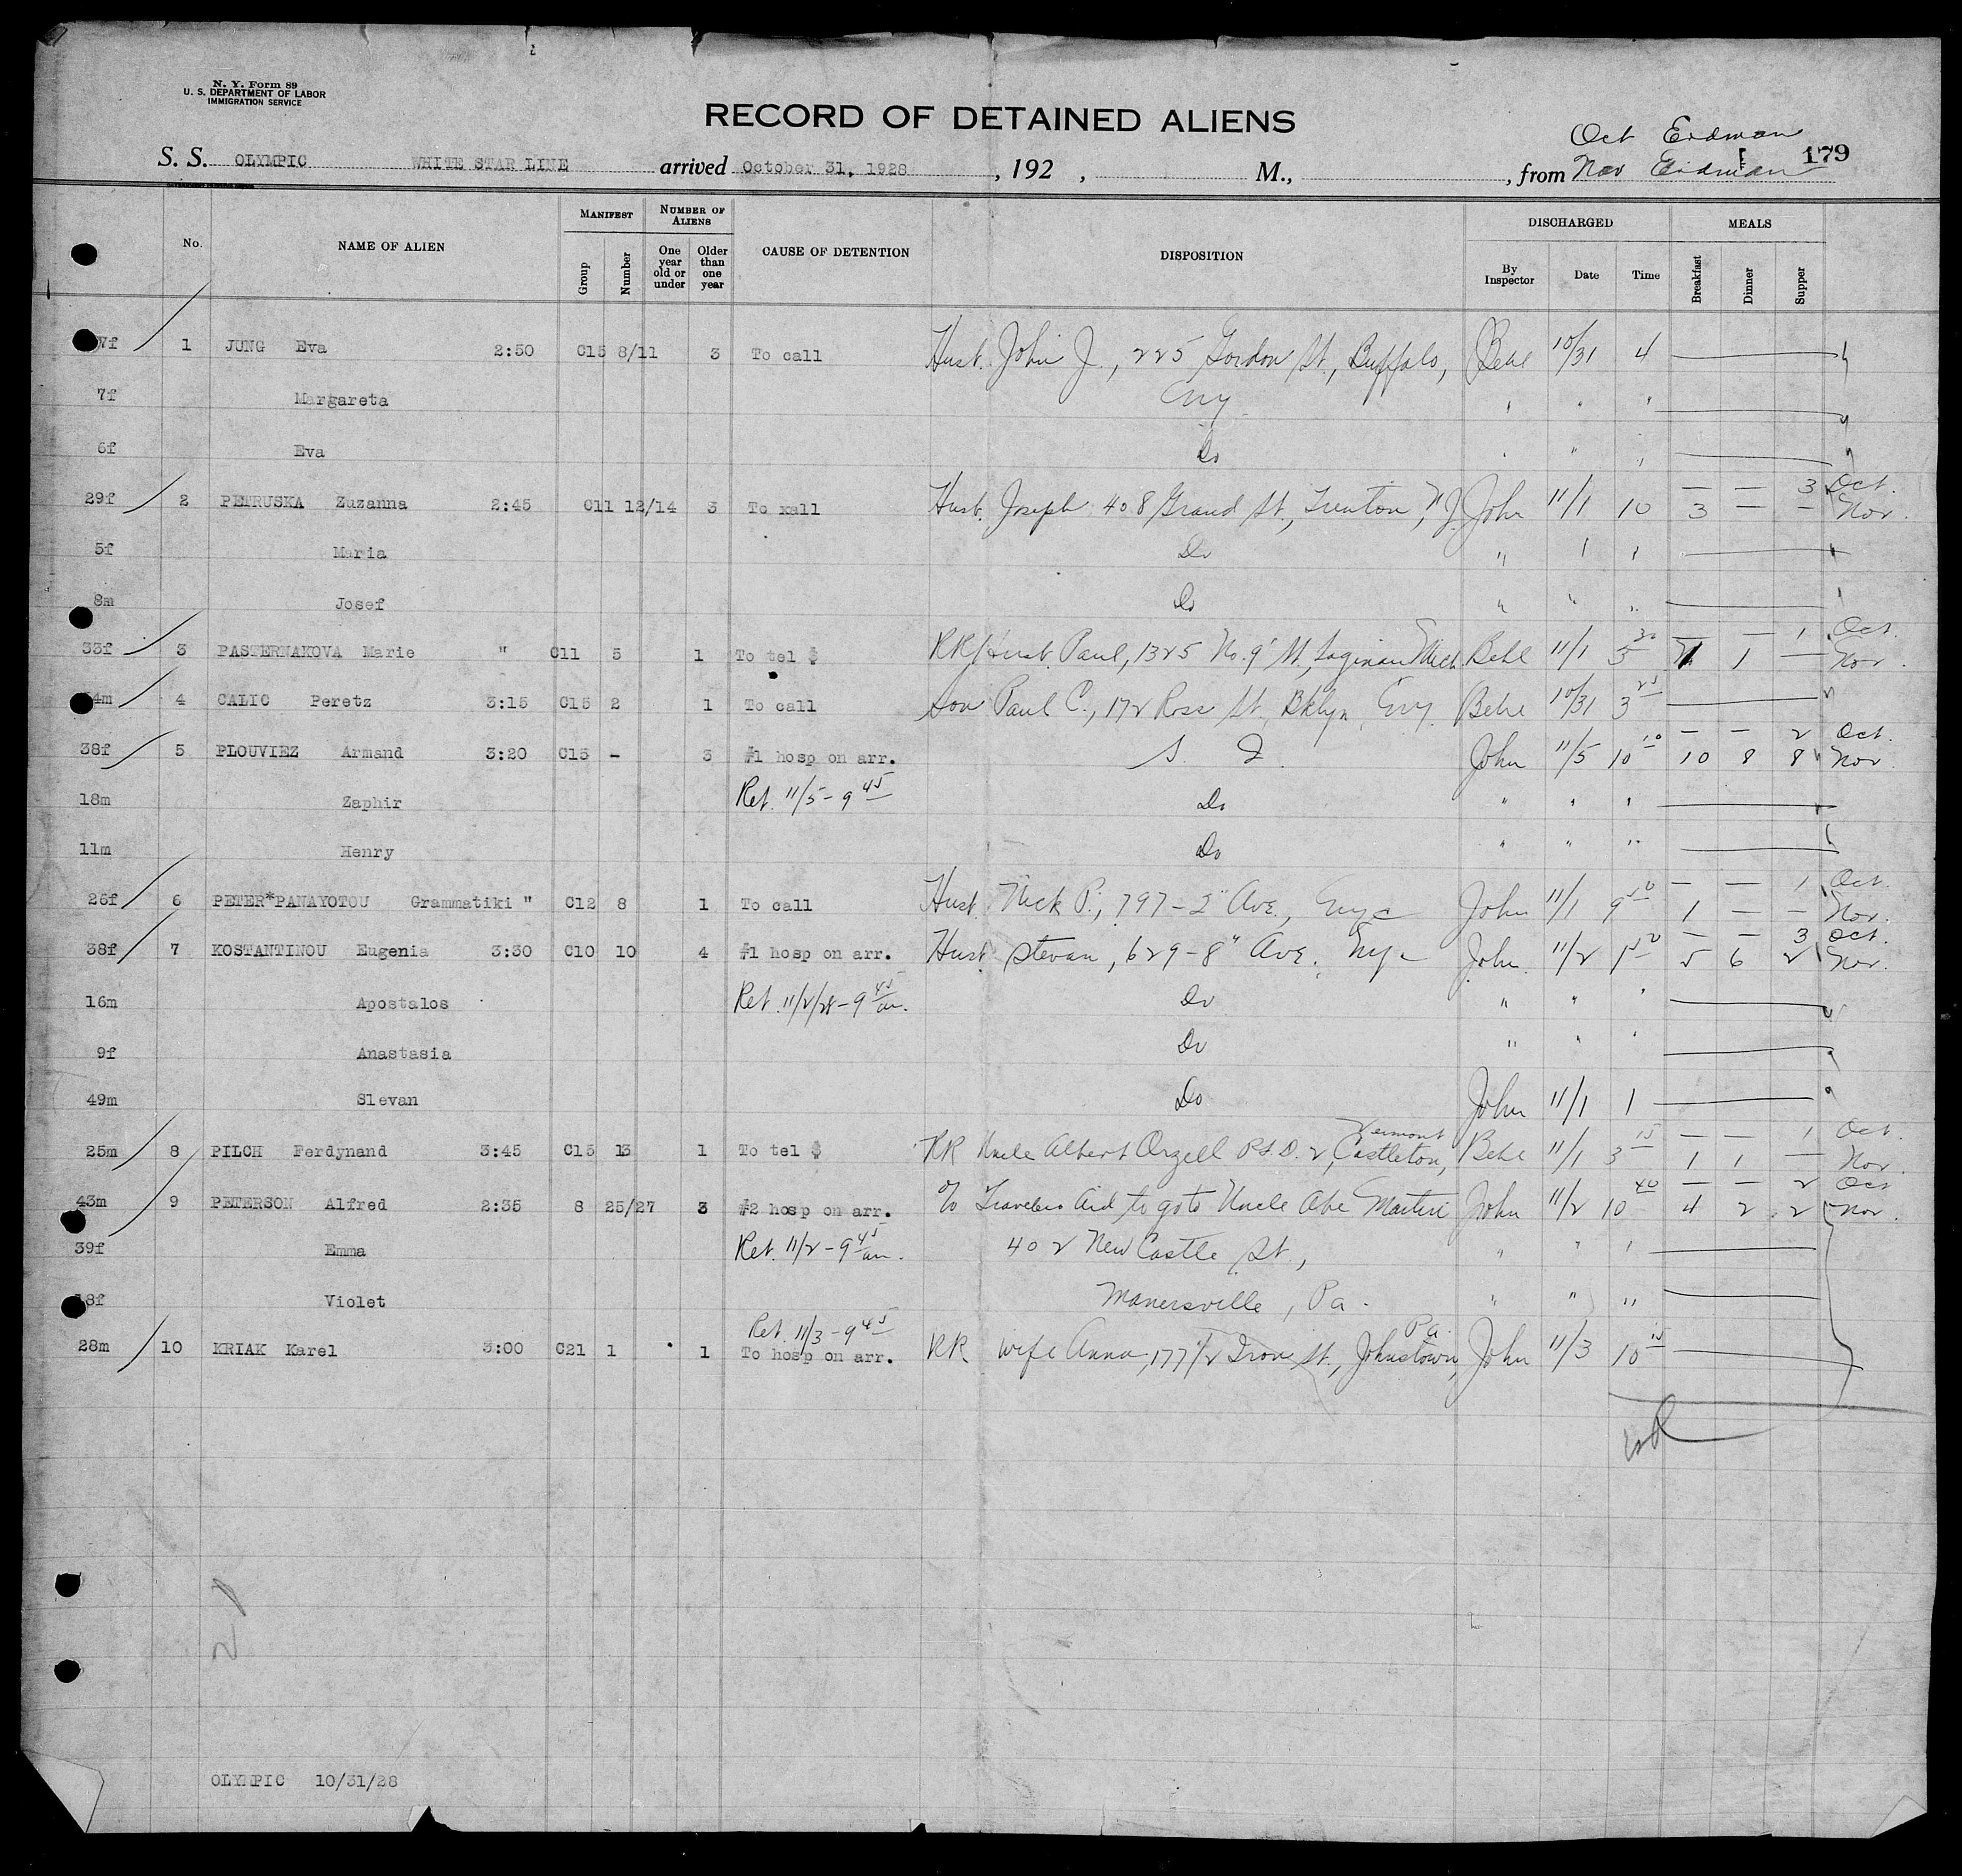 N. Y. Form 89
U. S. DEPARTMENT OF LABOR
IMMIGRATION SERVICE
RECORD OF DETAINED ALIENS
Oct Erdman
S. S. OLYMPIC WHITE STAR LINE arrived October 31, 1928 , 192 , M., , from Nov Erdman 179
No. NAME OF ALIEN MANIFEST Group Number NUMBER OF ALIENS One year old or under Older than one year CAUSE OF DETENTION DISPOSITION DISCHARGED By Inspector Date Time MEALS Breakfast Dinner Supper
7f 1 JUNG Eva 2:50 C15 8/11 3 To call Husb. John J., 225 Gordon St., Buffalo, Behl 10/31 4
7f Margareta NY " " "
6f Eva Do " " "
— — 3 Oct.
29f 2 PETRUSKA Zuzanna 2:45 C11 12/14 3 To xall Husb. Joseph 408 Grand St., Trenton, NJ. John 11/1 10 3 — — Nov.
5f Maria Do " " "
8m Josef Do " " "
— — 1 Oct.
33f 3 PASTERNAKOVA Marie " C11 5 1 To tel $ RR/Husb. Paul, 1325 No. 9" St, Saginaw Mich Behl 11/1 3 30 1 1 — Nov.
4m 4 CALIC Peretz 3:15 C15 2 1 To call Son Paul C., 172 Ross St. Bklyn, NY. Behl 10/31 3 25
— — 2 Oct.
38f 5 PLOUVIEZ Armand 3:20 C15 - 3 #1 hosp on arr. S. I. John 11/5 10 10 10 8 8 Nov.
18m Zaphir Ret. 11/5 - 9 45 Do " " "
11m Henry Do " " "
— — 1 Oct.
26f 6 PETER*PANAYOTOU Grammatiki " C12 8 1 To call Husb. Nick P., 797 - 2" Ave., NYC John 11/1 9 50 1 — — Nov.
— — 3 Oct.
38f 7 KOSTANTINOU Eugenia 3:30 C10 10 4 #1 hosp on arr. Husb Stevan, 629 - 8" Ave. NYC John 11/2 1 50 5 6 2 Nov.
16m Apostalos Ret. 11/2/28 - 9 45 am. Do " " "
9f Anastasia Do " " "
49m Slevan Do John 11/1 1
Vermont — — 1 Oct.
25m 8 PILCH Ferdynand 3:45 C15 13 1 To tel $ RR Uncle Albert Orzell R.F.D. 2, Castleton, Behl 11/1 3 15 1 1 — Nov.
— — 2 Oct
43m 9 PETERSON Alfred 2:35 8 25/27 3 #2 hosp on arr. % Travelers Aid to go to Uncle Abe Martin John 11/2 10 40 4 2 2 Nov.
39f Emma Ret. 11/2 - 9 45 am. 402 New Castle St., " " "
18f Violet Manersville, Pa. " " "
Ret. 11/3 - 9 45 Pa.
28m 10 KRIAK Karel 3:00 C21 1 1 To hosp on arr. RR wife Anna, 177 1/2 Iron St., Johnstown, John 11/3 10 15
OLYMPIC 10/31/28